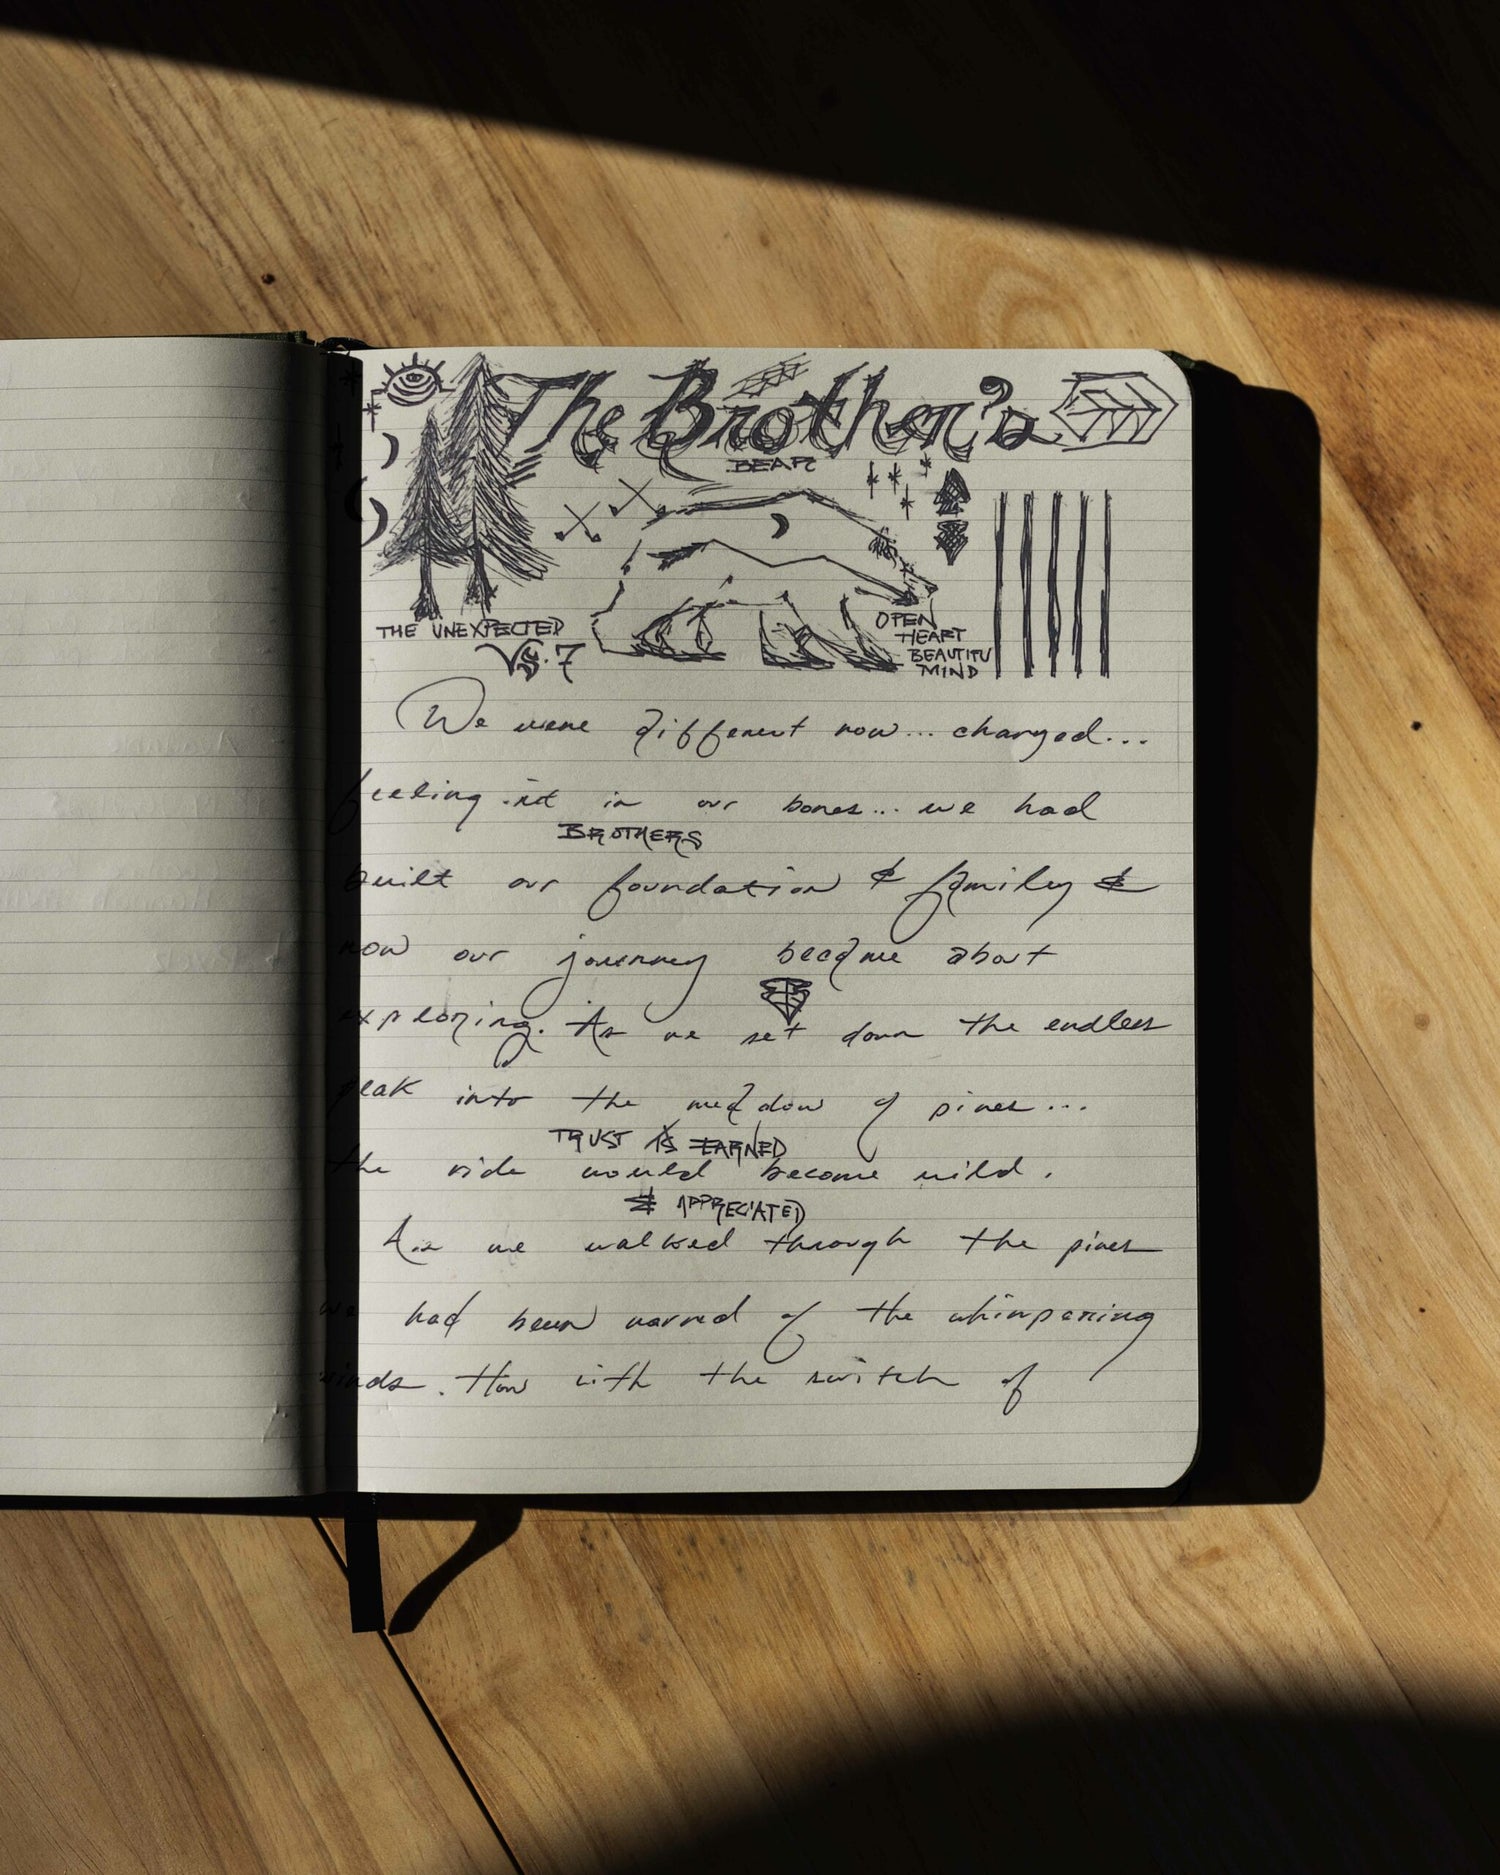 The Brother's
BEAR
THE UNEXPECTED
VS. 7
OPEN
HEART
BEAUTIFU
MIND
We were different now... changed...
feeling it in our bones... we had
BROTHERS
built our foundation & family &
now our journey became about
exploring. As we set down the endless
peak into the meadow of pines...
TRUST IS EARNED
the ride would become wild.
& APPRECIATED
As we walked through the pines
we had been warned of the whimpering
winds. How with the switch of